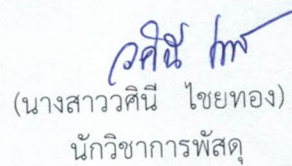 วศินี
(นางสาววศินี ไชยทอง)
นักวิชาการพัสดุ